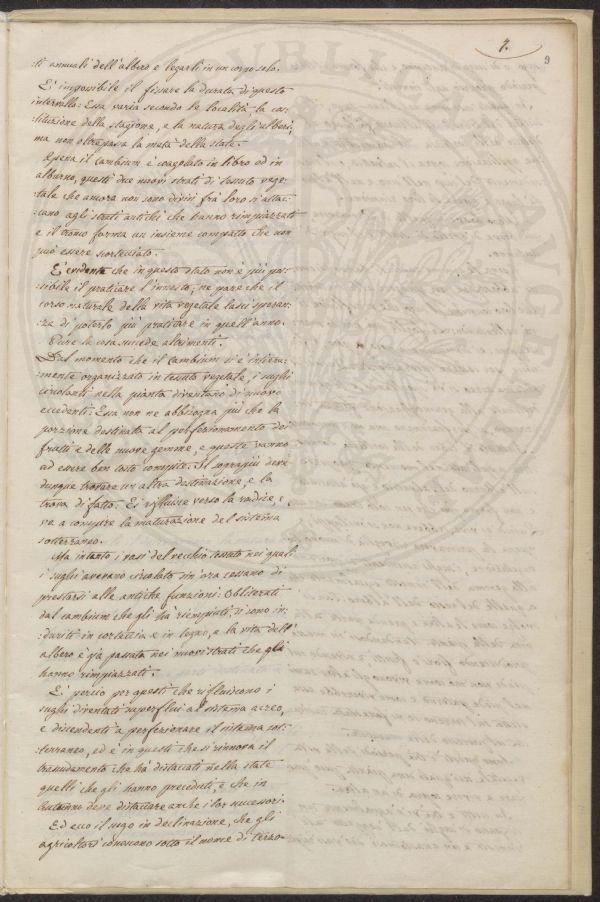 7.
9
:ti annuali dell'albero e legarli in un corpo solo.
E' impossibile il fissare la durata di questo
intervallo: Essa varia secondo le località, la cos:
:tituzione della stagione, e la natura degli alberi,
ma non oltrepassa la metà della state.
Appena il cambium è coagolato in libro od in
alburno, questi due nuovi strati di tessuto vege:
:tale che ancora non sono divisi frà loro si attac:
:cano agli strati antichi che hanno rimpiazzati
e il tronco forma un insieme compatto che non
può essere scortecciato.
È evidente che in questo stato non è più pos:
:sibile il praticare l'innesto; ne pare che il
corso naturale della vita vegetale lasci speran:
:za di poterlo più praticare in quell'anno.
Pure la cosa succede altrimenti.
Dal momento che il Cambium si è intiera:
:mente organizzato in tessuto vegetale, i sughi
circolanti nella pianta diventano di nuovo
eccedenti: Essa non ne abbisogna più che la
porzione destinata al perfezionamento dei
frutti e delle nuove gemme, e queste vanno
ad essere ben tosto compite. Il soprapiù deve
dunque trovare un'altra destinazione, e la
trova di fatto: Ei rifluisce verso la radice, e
va a compire la maturazione del sistema
sotterraneo.
Ma intanto i vasi del vecchio tessuto nei quali
i sughi avevano circolato sin'ora cessano di
prestarsi alle antiche funzioni: Obliterati
dal cambium che gli hà riempiuti, si sono in:
:duriti in corteccia e in legno, e la vita dell'
albero è già passata nei nuovi strati che gli
hanno rimpiazzati.
E' perciò per questi che rifluiscono i
sughi diventati superflui al sistema aereo,
e discendenti a perfezionare il sistema sot:
:terraneo, ed è in questi che si rinnova il
trasudamento che hà distaccati nella state
quelli che gli hanno preceduti, e che in
autunno deve distaccare anche i lor successori.
Ed ecco il sugo in declinazione, che gli
agricoltori conoscono sotto il nome di terzo